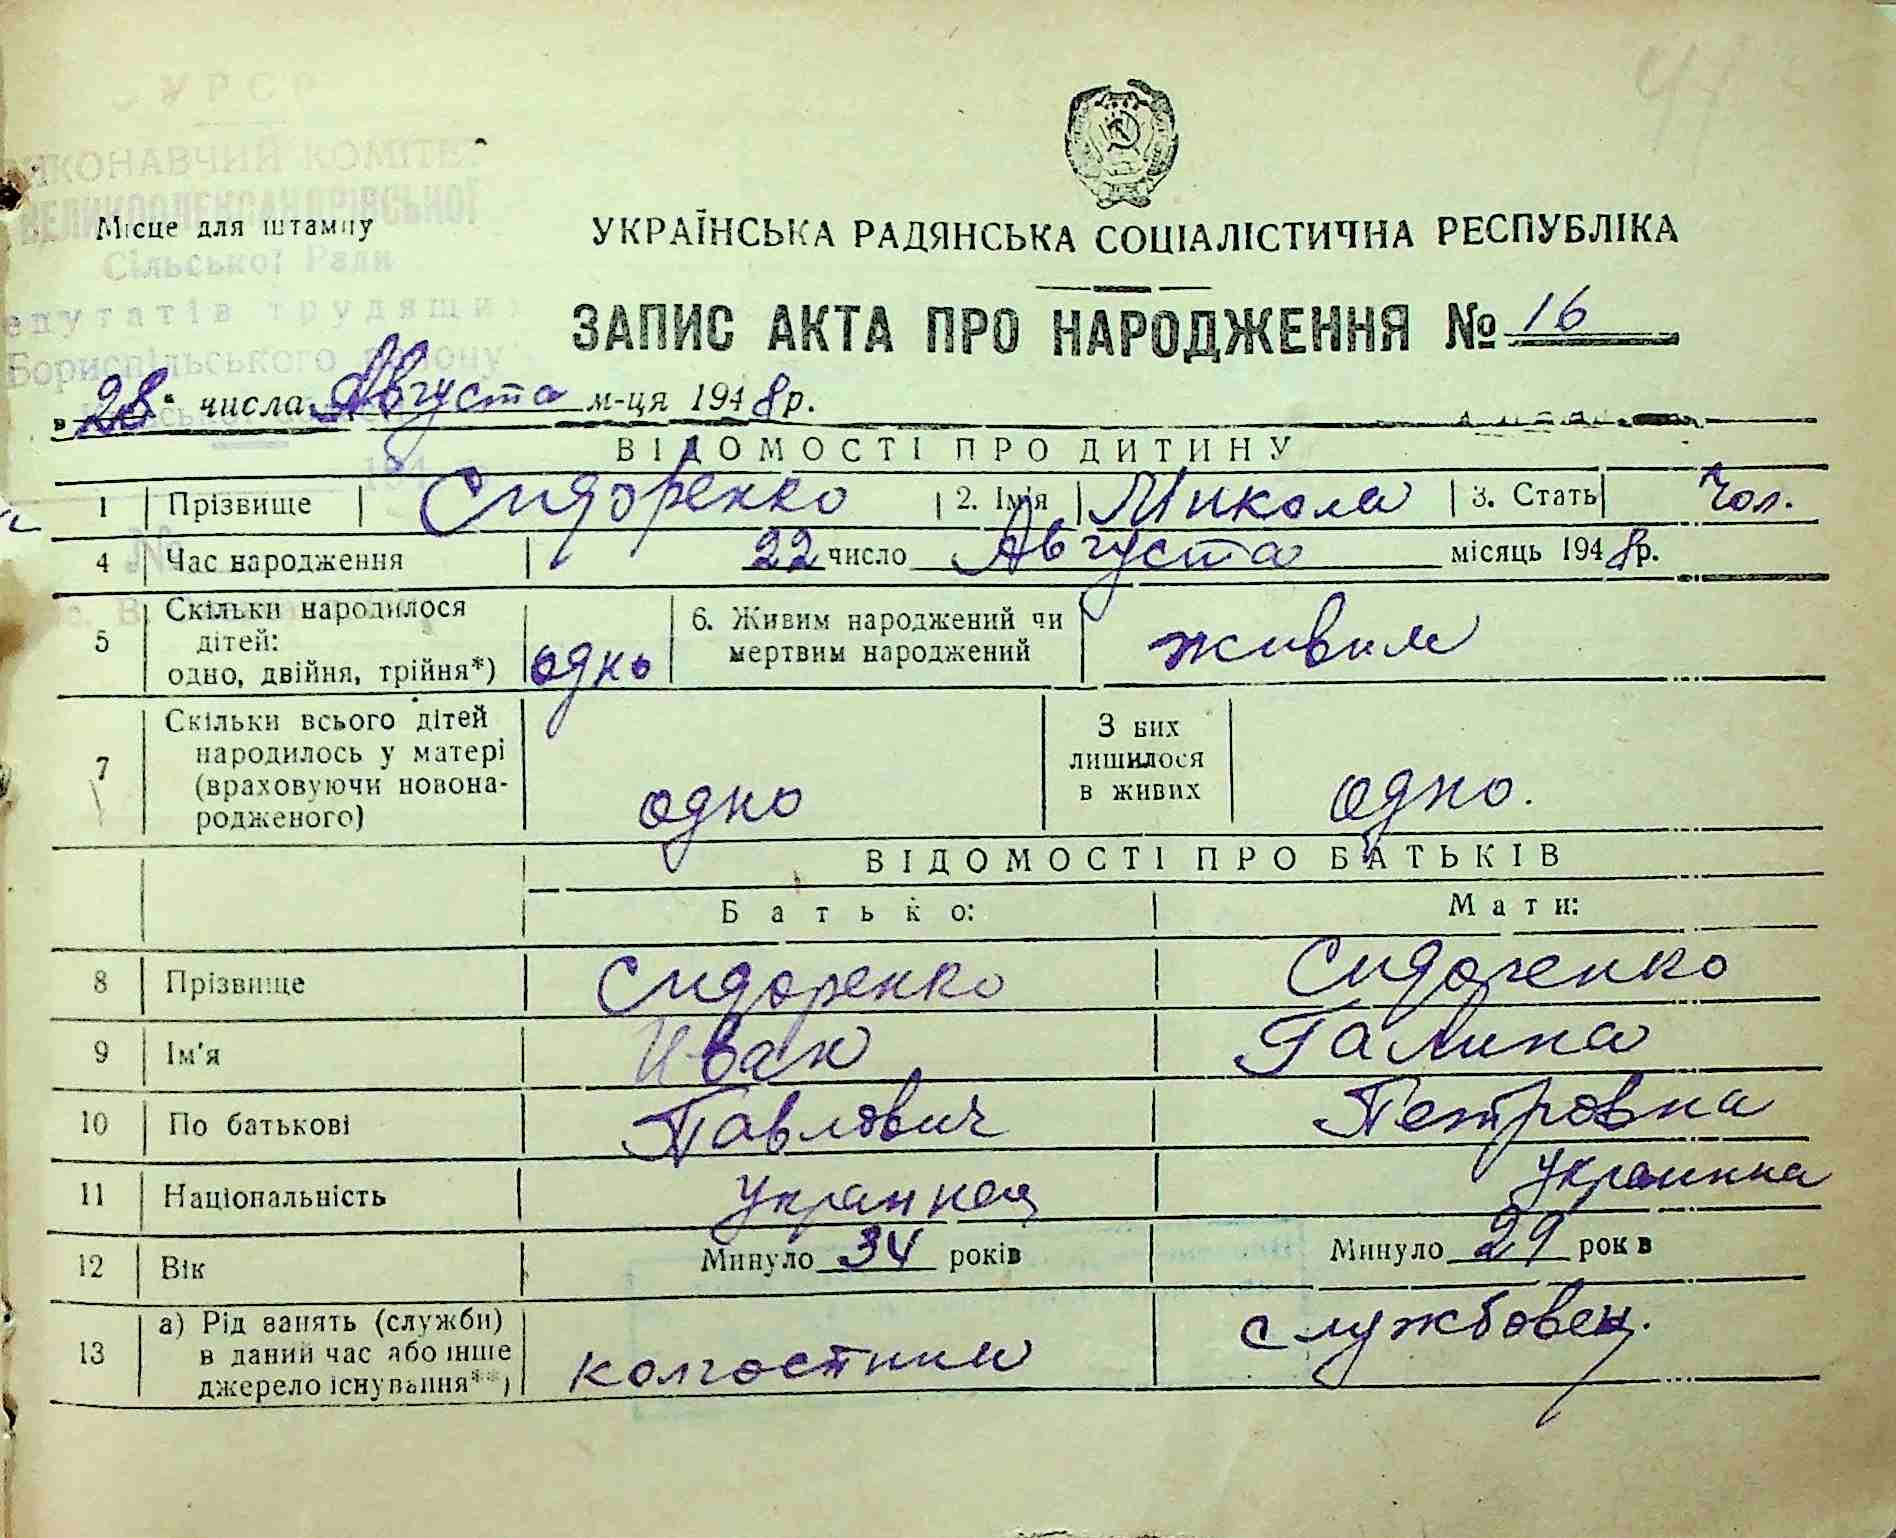 УРСР
ВИКОНАВЧИЙ КОМІТЕТ
ВЕЛИКООЛЕКСАНДРІВСЬКОЇ
Місце для штампу
Сільської Ради
депутатів трудящих
Бориспільського району
УКРАЇНСЬКА РАДЯНСЬКА СОЦІАЛІСТИЧНА РЕСПУБЛІКА
ЗАПИС АКТА ПРО НАРОДЖЕННЯ № 16
„28“ числа Августа м-ця 1948 р.
ВІДОМОСТІ ПРО ДИТИНУ
1 Прізвище Сидоренко 2. Ім'я Микола 3. Стать Чол.
4 Час народження 22 число Августа місяць 1948 р.
5 Скільки народилося дітей: одно, двійня, трійня*) одно 6. Живим народжений чи мертвим народжений живим
7 Скільки всього дітей народилось у матері (враховуючи новонародженого) одно З них лишилося в живих одно.
ВІДОМОСТІ ПРО БАТЬКІВ
Батько: Мати:
8 Прізвище Сидоренко Сидоренко
9 Ім'я Иван Галина
10 По батькові Павлович Петровна
11 Національність Украинец Украинка
12 Вік Минуло 34 років Минуло 29 рок в
13 а) Рід занять (служби) в даний час або інше джерело існування**) колгостник службовец.